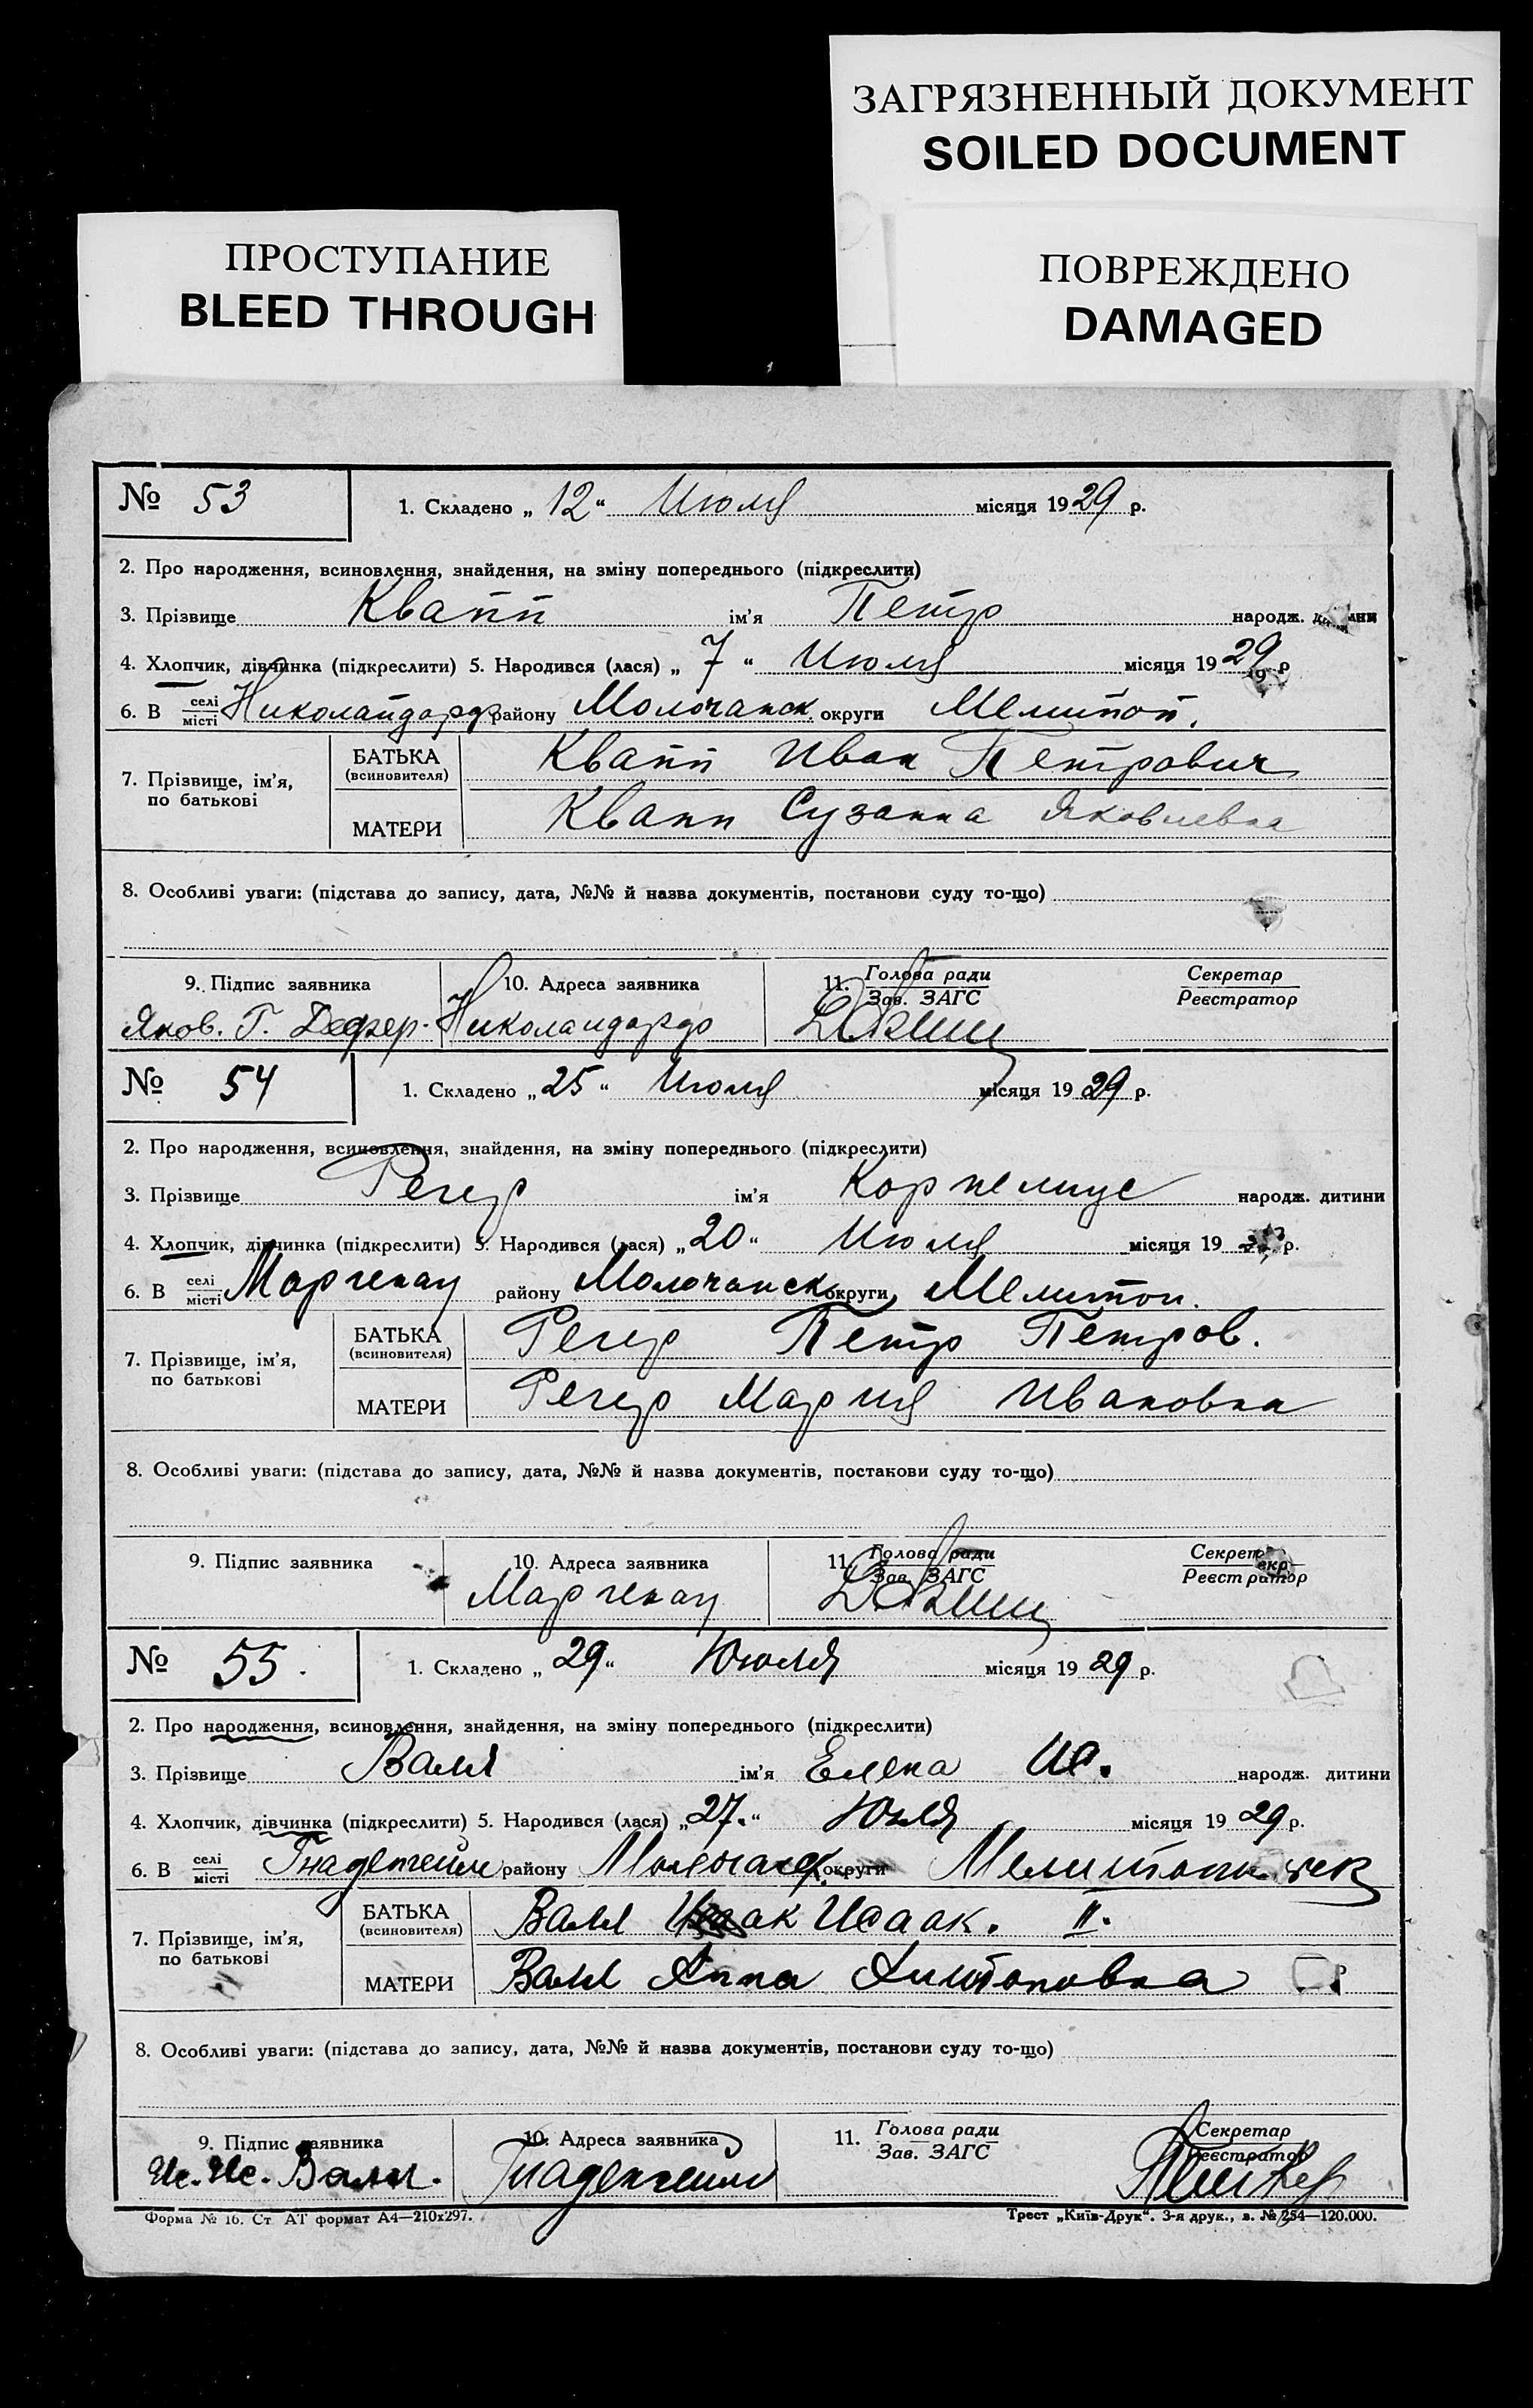 ЗАГРЯЗНЕННЫЙ ДОКУМЕНТ
SOILED DOCUMENT
ПРОСТУПАНИЕ
BLEED THROUGH
ПОВРЕЖДЕНО
DAMAGED
№ 53 1. Складено „ 12 “ Июля місяця 1929 р.
2. Про народження, всиновлення, знайдення, на зміну попереднього (підкреслити)
3. Прізвище Квапп ім'я Петр народж.
4. Хлопчик, дівчинка (підкреслити) 5. Народився (лася) „ 7 “ Июля місяця 1929 р
6. В селі місті Николайдорф району Молочанск. округи Мелитоп.
7. Прізвище, ім'я, по батькові БАТЬКА (всиновителя) Квапп Иван Петрович
МАТЕРИ Квапп Сузанна Яковлевна
8. Особливі уваги: (підстава до запису, дата, №№ й назва документів, постанови суду то-що)
9. Підпис заявника 10. Адреса заявника 11. Голова ради Зав. ЗАГС Секретар Реєстратор
Яков. Г. Николайдорф
№ 54 1. Складено „ 25 “ Июля місяця 1929 р.
2. Про народження, всиновлення, знайдення, на зміну попереднього (підкреслити)
3. Прізвище Регер ім'я Корнелиус народж. дитини
4. Хлопчик, дівчинка (підкреслити) 5. Народився (лася) „ 20 “ Июля місяця 19 р.
6. В селі місті Маргенау району Молочанск округи Мелитоп.
7. Прізвище, ім'я, по батькові БАТЬКА (всиновителя) Регер Петр Петров.
МАТЕРИ Регер Мария Ивановна
8. Особливі уваги: (підстава до запису, дата, №№ й назва документів, постанови суду то-що)
9. Підпис заявника 10. Адреса заявника 11. Голова ради Зав. ЗАГС Реєстратор
Маргенау
№ 55. 1. Складено „ 29 “ Июля місяця 1929 р.
2. Про народження, всиновлення, знайдення, на зміну попереднього (підкреслити)
3. Прізвище Валл ім'я Елена Ис. народж. дитини
4. Хлопчик, дівчинка (підкреслити) 5. Народився (лася) „ 27. “ Июля місяця 1929 р.
6. В селі місті Гнаденгейм району округи
7. Прізвище, ім'я, по батькові БАТЬКА (всиновителя) Валл Исаак Исаак. II.
МАТЕРИ Валл Анна Антоновна
8. Особливі уваги: (підстава до запису, дата, №№ й назва документів, постанови суду то-що)
9. Підпис заявника 10. Адреса заявника 11. Голова ради Зав. ЗАГС Секретар Реєстратор
Ис. Ис. Валл. Гнаденгейм
Форма № 16. Ст АТ формат А4—210x297. Трест „Київ-Друк“. 3-я друк., з. № 254—120.000.